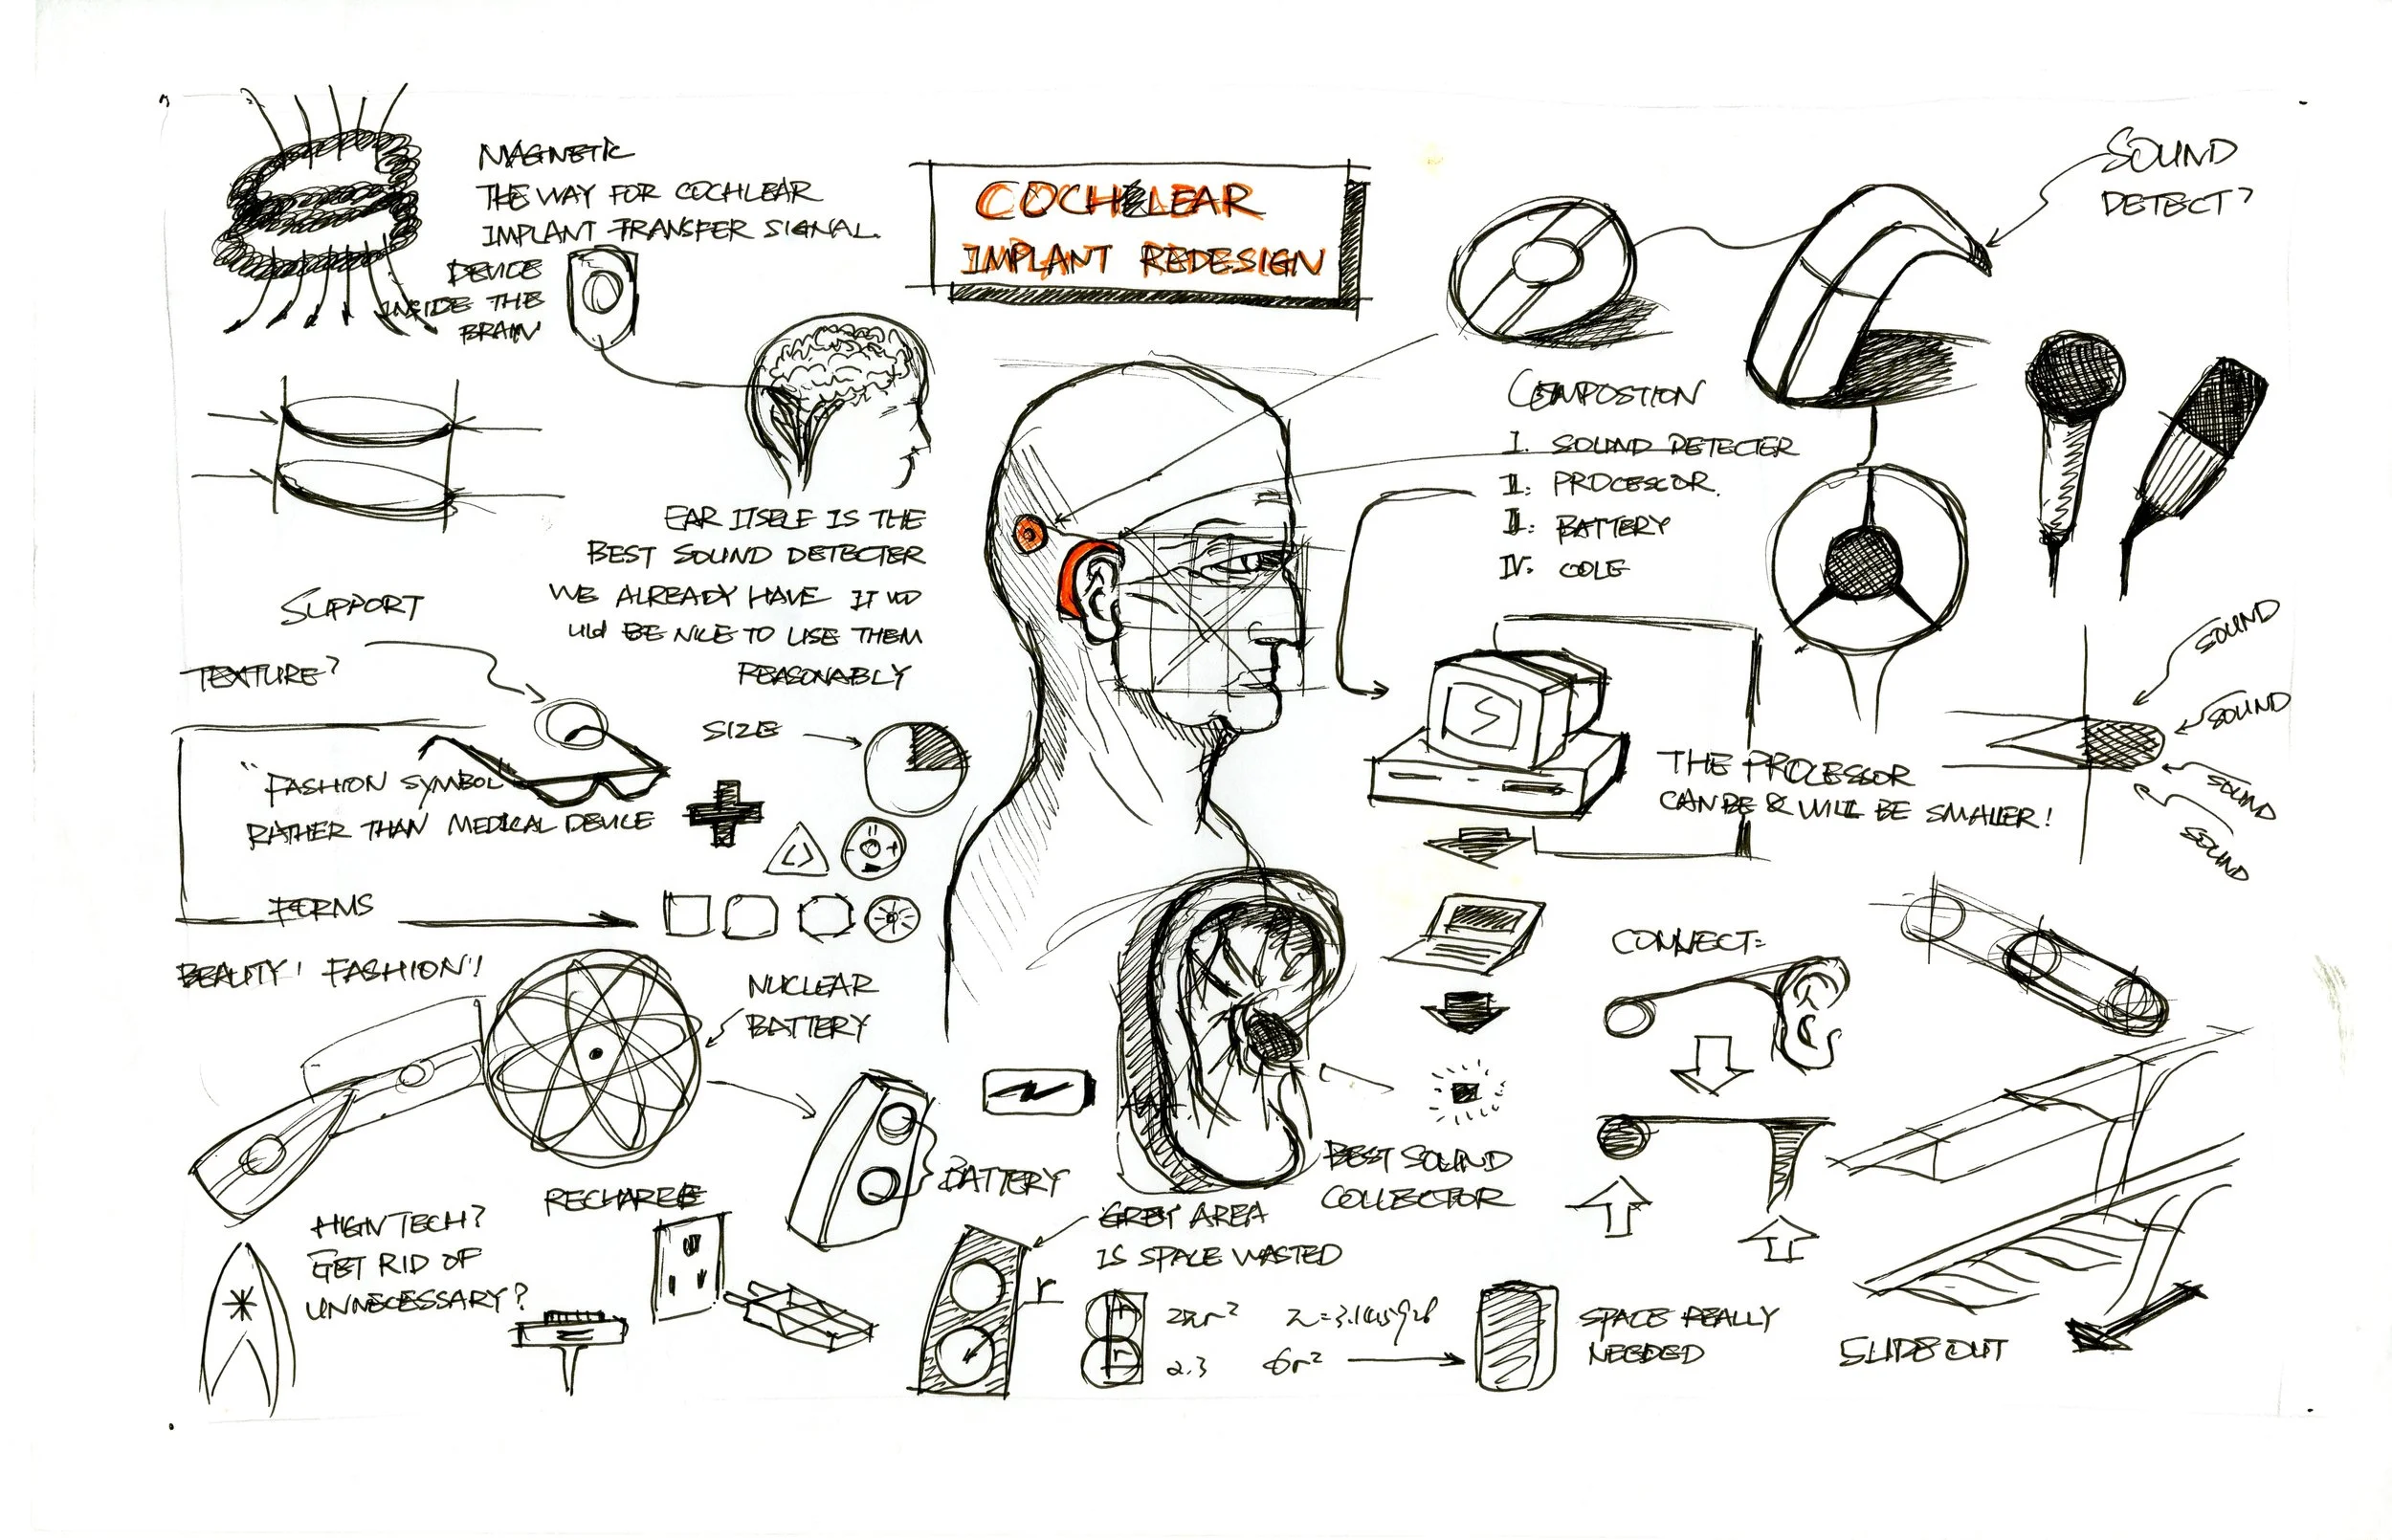 MAGNETIC
THE WAY FOR COCHLEAR
IMPLANT TRANSFER SIGNAL.
DEVICE
INSIDE THE
BRAIN
COCHLEAR
IMPLANT REDESIGN
SOUND
DETECT?
COMPOSTION
I. SOUND DETECTER
II: PROCESSOR.
II: BATTERY
IV: COLE
EAR ITSELF IS THE
BEST SOUND DETECTER
WE ALREADY HAVE IT WO
ULd BE NICE TO USE THEM
REASONABLY
SUPPORT
TEXTURE?
SIZE
"FASHION SYMBOL"
RATHER THAN MEDICAL DEVICE
FORMS
BEAUTY! FASHION!
NUCLEAR
BATTERY
THE PROCESSOR
CAN BE & WILL BE SMALLER!
SOUND
SOUND
SOUND
SOUND
CONNECT:
BATTERY
BEST SOUND
COLLECTOR
RECHARGE
HIGH TECH?
GET RID OF
UNNECESSARY?
GREY AREA
IS SPACE WASTED
r
r
2πr²
6r²
SPACE REALLY
NEEDED
SLIDE OUT